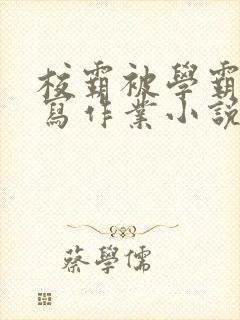 校霸被學霸
寫作業小説
蔡學儒